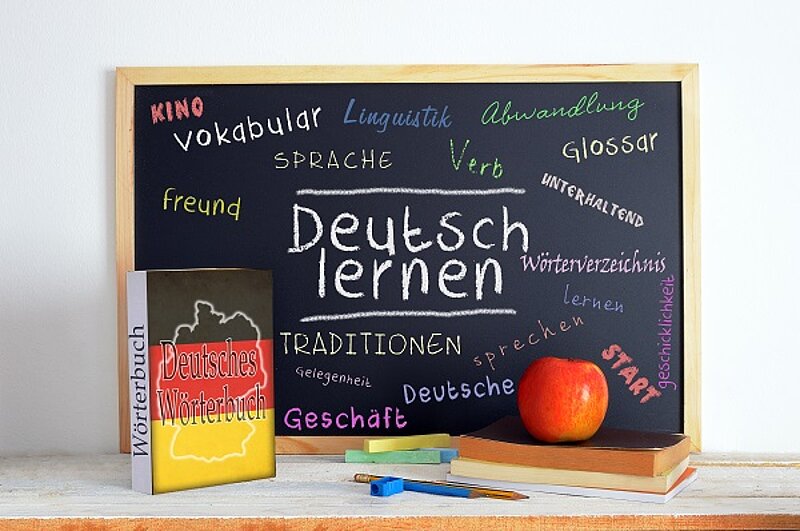 KINO
vokabular
Linguistik
Abwandlung
SPRACHE
Verb
Glossar
freund
UNTERHALTEND
Deutsch
lernen
Wörterverzeichnis
lernen
geschicklichkeit
TRADITIONEN
sprechen
START
Gelegenheit
Deutsche
Geschäft
Wörterbuch
Deutsches
Wörterbuch